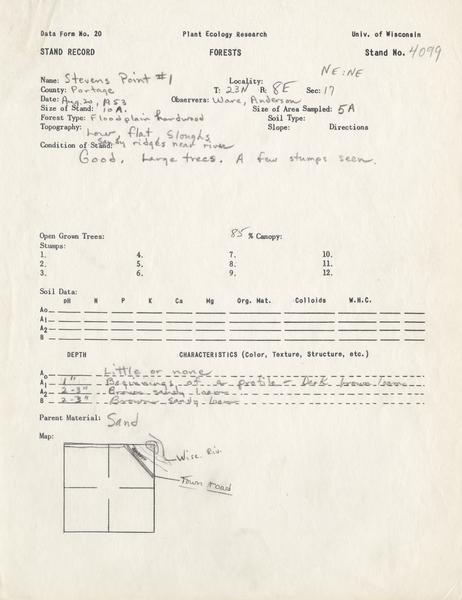 Data Form No. 20 Plant Ecology Research Univ. of Wisconsin
STAND RECORD FORESTS Stand No. 4099
NE:NE
Name: Stevens Point #1 Locality:
County: Portage T: 23N R: 8E Sec: 17
Date: Aug. 20, 1953 Observers: Ware, Anderson
Size of Stand: 10A. Size of Area Sampled: 5A
Forest Type: Floodplain hardwood Soil Type:
Topography: Low, flat Sloughs Slope: Directions
Sandy ridges near river
Condition of Stand:
Good. Large trees. A few stumps seen.
Open Grown Trees: 85 % Canopy:
Stumps:
1. 4. 7. 10.
2. 5. 8. 11.
3. 6. 9. 12.
Soil Data:
pH N P K Ca Mg Org. Mat. Colloids W.H.C.
Ao
A1
A2
B
DEPTH CHARACTERISTICS (Color, Texture, Structure, etc.)
Ao Little or none
A1 1" Beginnings of a profile - Dark brown loam
A2 2-3" Brown sandy loam
B 2-3" Brown sandy loam
Parent Material: Sand
Map:
Wisc. Riv.
Town road